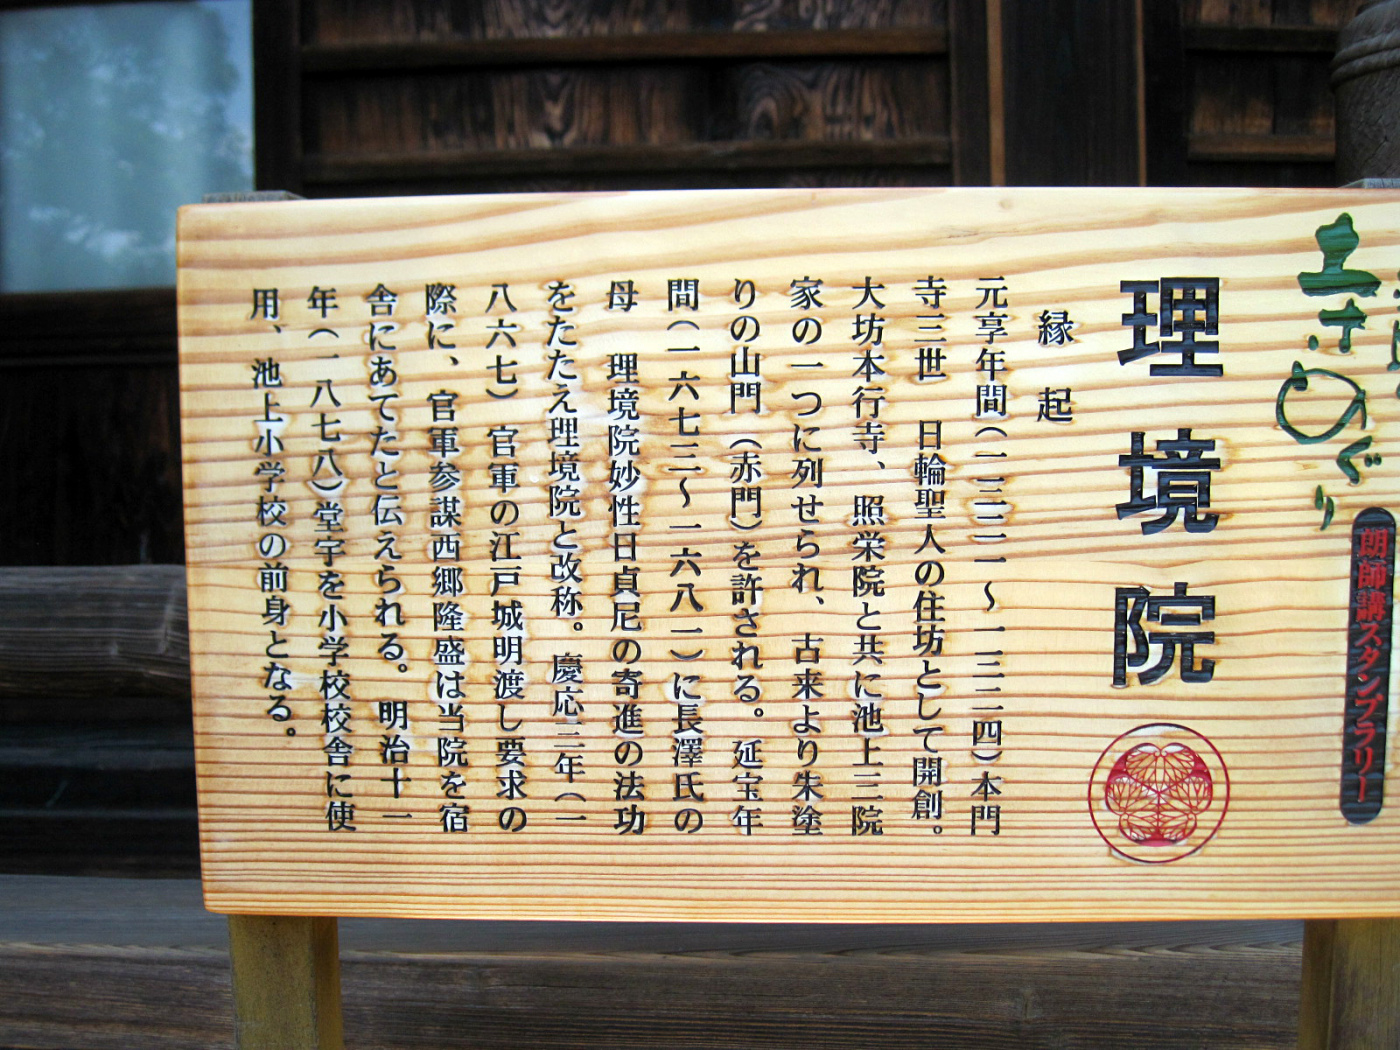 まちめぐり
朗師講スタンプラリー
理境院
縁起
元享年間(一三二一～一三二四)本門
寺三世　日輪聖人の住坊として開創。
大坊本行寺、照栄院と共に池上三院
家の一つに列せられ、古来より朱塗
りの山門（赤門）を許される。延宝年
間(一六七三～一六八一)に長澤氏の
母　理境院妙性日貞尼の寄進の法功
をたたえ理境院と改称。慶応三年(一
八六七)官軍の江戸城明渡し要求の
際に、官軍参謀西郷隆盛は当院を宿
舎にあてたと伝えられる。明治十一
年(一八七八)堂宇を小学校校舎に使
用、池上小学校の前身となる。